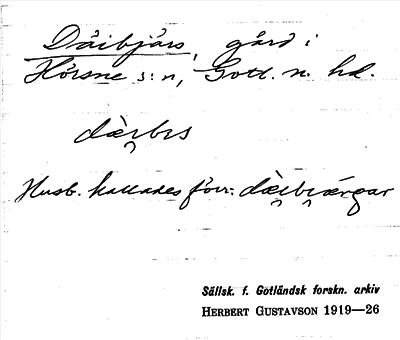 Dåibjårs, gård i
Hörsne s:n, Gotl. n. hd.
dàı̯brs
Husb. kallades förr: dàı̯bı̯árgar
Sällsk. f. Gotländsk forskn. arkiv
HERBERT GUSTAVSON 1919—26